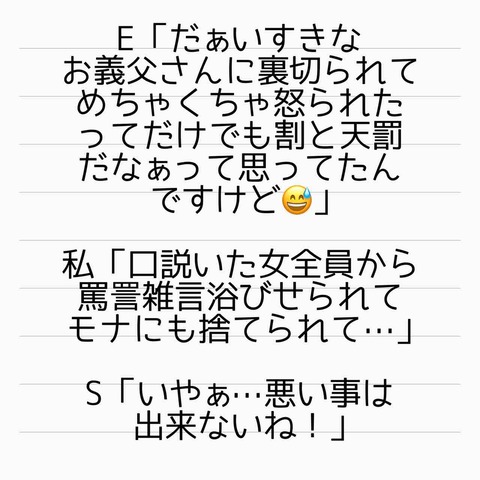 E「だぁいすきな
お義父さんに裏切られて
めちゃくちゃ怒られた
ってだけでも割と天罰
だなぁって思ってたん
ですけど😅」
私「口説いた女全員から
罵詈雑言浴びせられて
モナにも捨てられて…」
S「いやぁ…悪い事は
出来ないね！」